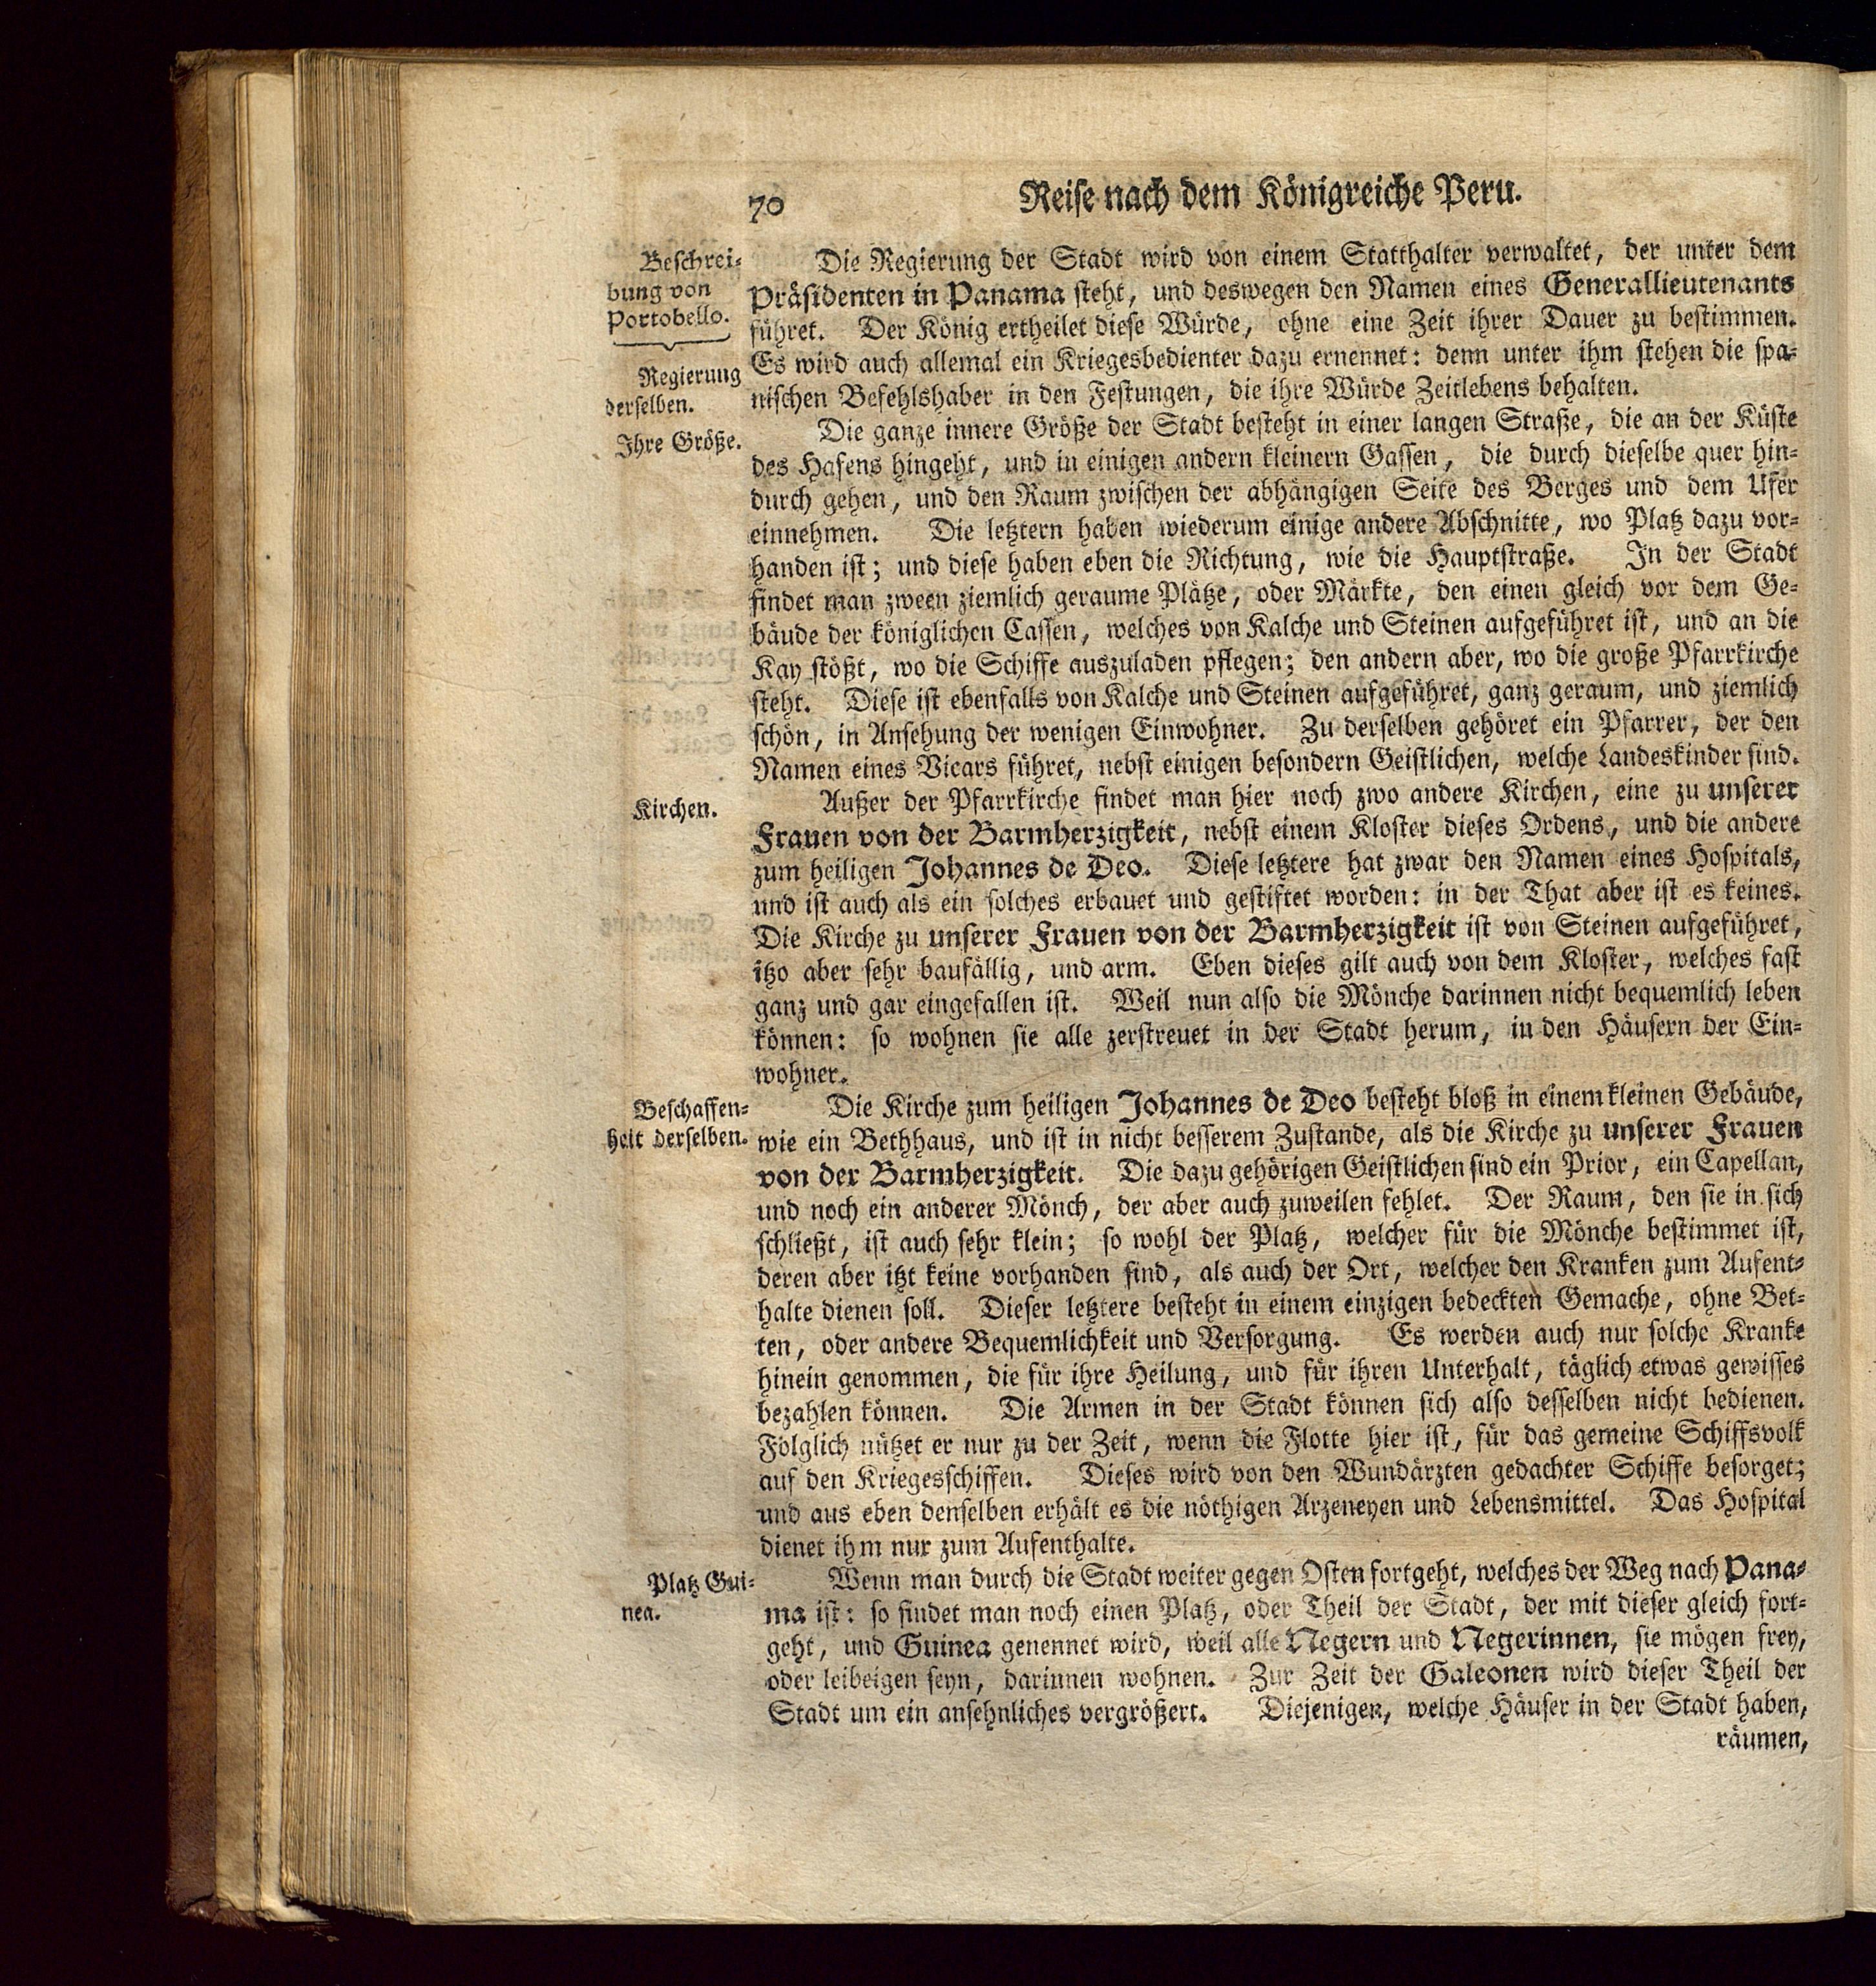 70
Reise nach dem Königreiche Peru.
Beschrei-
bung von
Portobello.
Regierung
derselben.
Die Regierung der Stadt wird von einem Statthalter verwaltet, der unter dem
Präsidenten in Panama steht, und deswegen den Namen eines Generallieutenants
führet. Der König ertheilet diese Würde, ohne eine Zeit ihrer Dauer zu bestimmen.
Es wird auch allemal ein Kriegesbedienter dazu ernennet: denn unter ihm stehen die spa-
nischen Befehlshaber in den Festungen, die ihre Würde Zeitlebens behalten.
Ihre Größe.
Die ganze innere Größe der Stadt besteht in einer langen Straße, die an der Küste
des Hafens hingeht, und in einigen andern kleinern Gassen, die durch dieselbe quer hin-
durch gehen, und den Raum zwischen der abhängigen Seite des Berges und dem Ufer
einnehmen. Die letztern haben wiederum einige andere Abschnitte, wo Platz dazu vor-
handen ist; und diese haben eben die Richtung, wie die Hauptstraße. In der Stadt
findet man zween ziemlich geraume Plätze, oder Märkte, den einen gleich vor dem Ge-
bäude der königlichen Cassen, welches von Kalche und Steinen aufgeführet ist, und an die
Kay stößt, wo die Schiffe auszuladen pflegen; den andern aber, wo die große Pfarrkirche
steht. Diese ist ebenfalls von Kalche und Steinen aufgeführet, ganz geraum, und ziemlich
schön, in Ansehung der wenigen Einwohner. Zu derselben gehöret ein Pfarrer, der den
Namen eines Vicars führet, nebst einigen besondern Geistlichen, welche Landeskinder sind.
Kirchen.
Außer der Pfarrkirche findet man hier noch zwo andere Kirchen, eine zu unserer
Frauen von der Barmherzigkeit, nebst einem Kloster dieses Ordens, und die andere
zum heiligen Johannes de Deo. Diese letztere hat zwar den Namen eines Hospitals,
und ist auch als ein solches erbauet und gestiftet worden: in der That aber ist es keines.
Die Kirche zu unserer Frauen von der Barmherzigkeit ist von Steinen aufgeführet,
itzo aber sehr baufällig, und arm. Eben dieses gilt auch von dem Kloster, welches fast
ganz und gar eingefallen ist. Weil nun also die Mönche darinnen nicht bequemlich leben
können: so wohnen sie alle zerstreuet in der Stadt herum, in den Häusern der Ein-
wohner.
Beschaffen-
heit derselben.
Die Kirche zum heiligen Johannes de Deo besteht bloß in einem kleinen Gebäude,
wie ein Bethhaus, und ist in nicht besserem Zustande, als die Kirche zu unserer Frauen
von der Barmherzigkeit. Die dazu gehörigen Geistlichen sind ein Prior, ein Capellan,
und noch ein anderer Mönch, der aber auch zuweilen fehlet. Der Raum, den sie in sich
schließt, ist auch sehr klein; so wohl der Platz, welcher für die Mönche bestimmet ist,
deren aber itzt keine vorhanden sind, als auch der Ort, welcher den Kranken zum Aufent-
halte dienen soll. Dieser letztere besteht in einem einzigen bedeckten Gemache, ohne Bet-
ten, oder andere Bequemlichkeit und Versorgung. Es werden auch nur solche Kranke
hinein genommen, die für ihre Heilung, und für ihren Unterhalt, täglich etwas gewisses
bezahlen können. Die Armen in der Stadt können sich also desselben nicht bedienen.
Folglich nützet er nur zu der Zeit, wenn die Flotte hier ist, für das gemeine Schiffsvolk
auf den Kriegesschiffen. Dieses wird von den Wundärzten gedachter Schiffe besorget;
und aus eben denselben erhält es die nöthigen Arzeneyen und Lebensmittel. Das Hospital
dienet ihm nur zum Aufenthalte.
Platz Gui-
nea.
Wenn man durch die Stadt weiter gegen Osten fortgeht, welches der Weg nach Pana-
ma ist: so findet man noch einen Platz, oder Theil der Stadt, der mit dieser gleich fort-
geht, und Guinea genennet wird, weil alle Negern und Negerinnen, sie mögen frey,
oder leibeigen seyn, darinnen wohnen. Zur Zeit der Galeonen wird dieser Theil der
Stadt um ein ansehnliches vergrößert. Diejenigen, welche Häuser in der Stadt haben,
räumen,